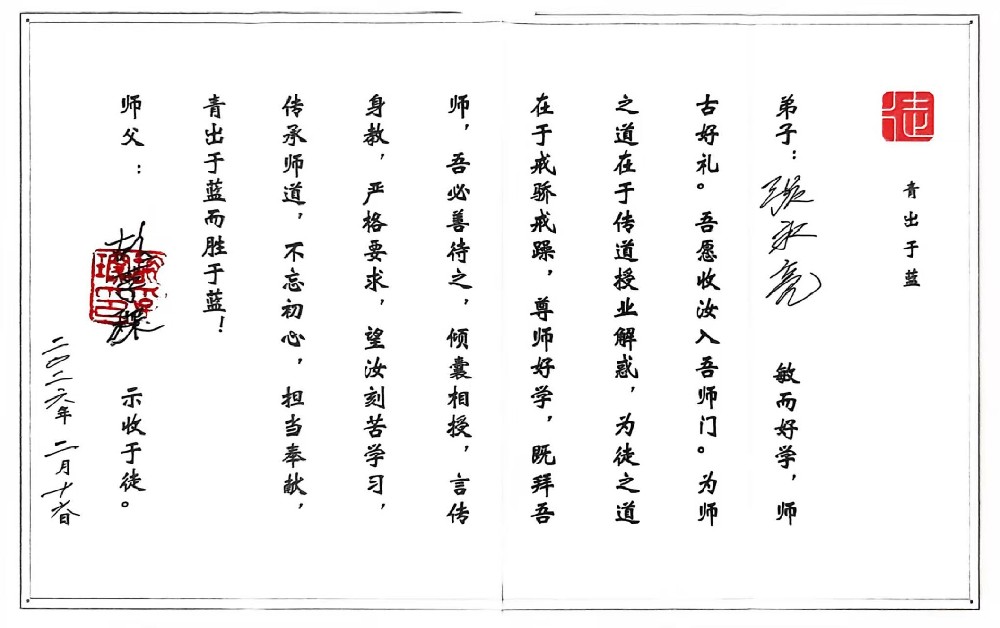 徒
青出于蓝
弟子：张永亮 敏而好学，师
古好礼。吾愿收汝入吾师门。为师
之道在于传道授业解惑，为徒之道
在于戒骄戒躁，尊师好学，既拜吾
师，吾必善待之，倾囊相授，言传
身教，严格要求，望汝刻苦学习，
传承师道，不忘初心，担当奉献，
青出于蓝而胜于蓝！
师父： 示收于徒。
二〇二六年二月十六日